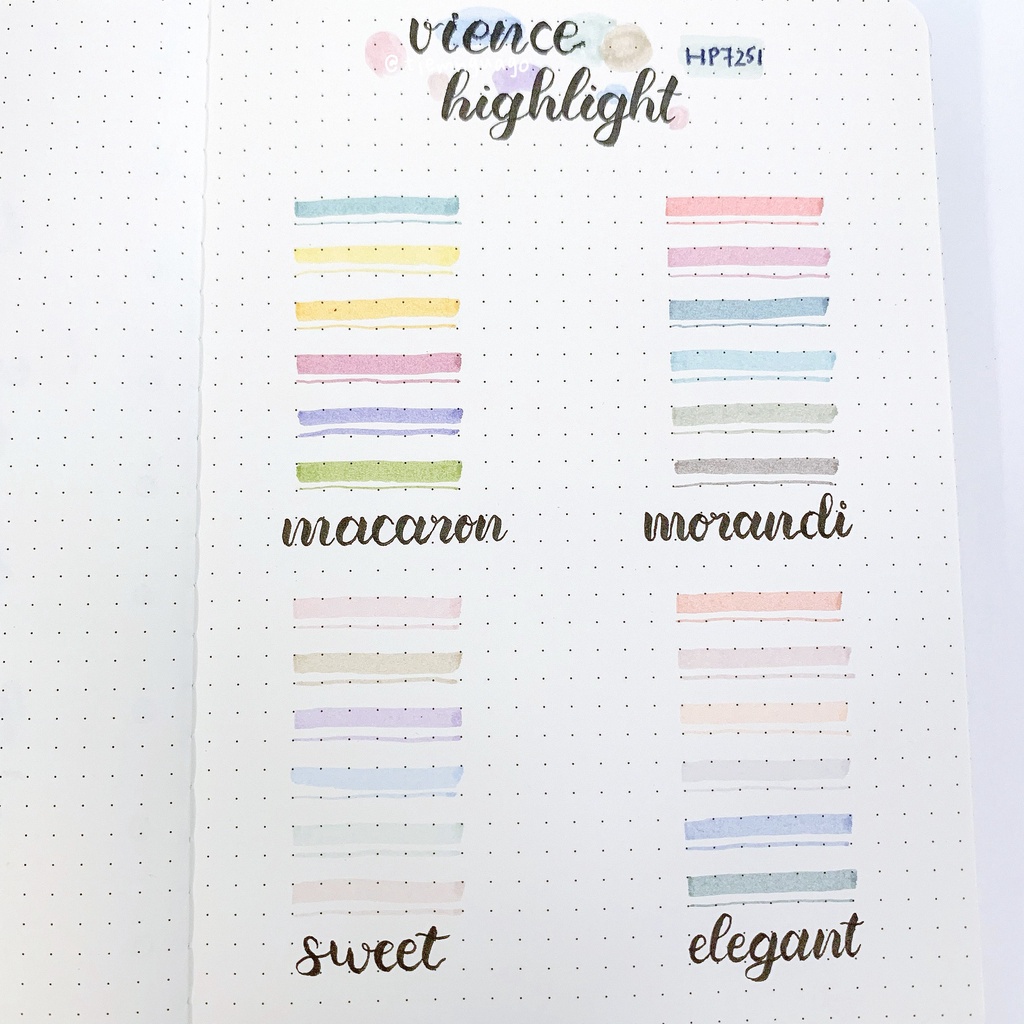 vience
HP7251
highlight
macaron
morandi
sweet
elegant